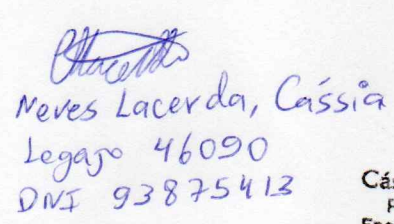 Neves Lacerda, Cássia
Legajo 46090
DNI 93875413
Cás